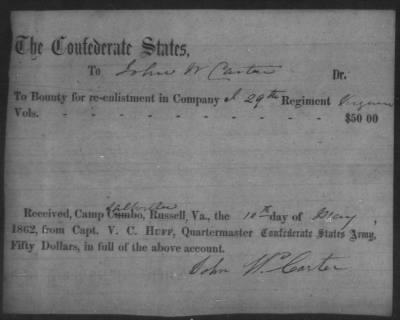 The Confederate States,
To John W Carter Dr.
To Bounty for re-enlistment in Company I 29th Regiment Virginia
Vols. - - - - - - - - $50 00
Received, Camp Cumbo, Russell, Va., the 10th day of May,
1862, from Capt. V. C. HUFF, Quartermaster Confederate States Army,
Fifty Dollars, in full of the above account.
John W. Carter